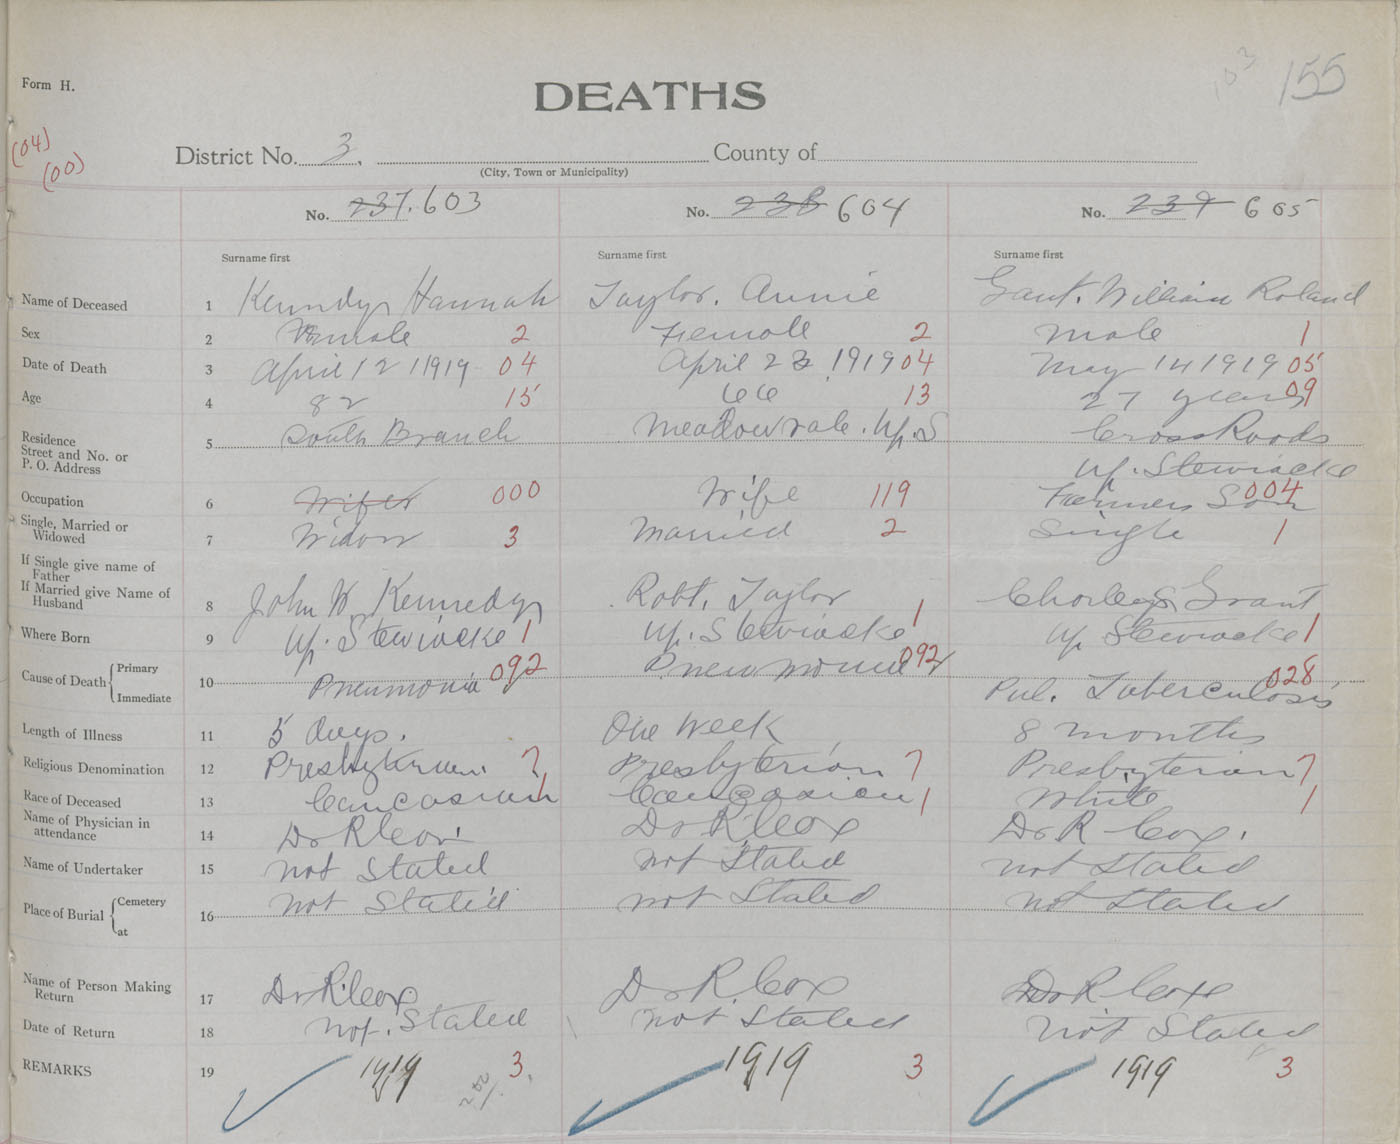 155
Form H.
DEATHS
(04)
(00)
District No. 3, County of
(City, Town or Municipality)
No. 237. 603 No. 238 604 No. 239 605
Surname first Surname first Surname first
Name of Deceased 1 Kenndy Hannah Taylor. Annie Gant. William Roland
Sex 2 Female 2 Female 2 male 1
Date of Death 3 April 12 1919 04 April 23 1919 04 May 14 1919 05
Age 4 82 15 66 13 27 years 09
Residence 5 South Branch Meadowvale. Up. S Cross Roads
Street and No. or
P. O. Address Up. Stewiacke
Occupation 6 000 Wife 119 Farmers Son 004
Single, Married or
Widowed 7 Widow 3 Married 2 Single 1
If Single give name of
Father
If Married give Name of
Husband 8 John W. Kennedy Robt. Taylor Charles Grant
Where Born 9 Up. Stewiacke 1 Up. Stewiacke 1 Up Stewiacke 1
Cause of Death { Primary 10 Pneumonia 092 Pneumonia 092 Pul. Tuberculosis 028
Immediate
Length of Illness 11 5 days. One Week 8 months
Religious Denomination 12 Presbyterian. 7 Presbyterian 7 Presbyterian 7
Race of Deceased 13 Caucasian 1 Caucasian 1 White 1
Name of Physician in
attendance 14 Dr R Cox Dr R Cox Dr R Cox.
Name of Undertaker 15 not Stated not Stated not Stated
Place of Burial { Cemetery 16 not Stated not Stated not Stated
at
Name of Person Making
Return 17 Dr R. Cox Dr R. Cox Dr R Cox
Date of Return 18 not. Stated not Stated not Stated
REMARKS 19 1919 3 1919 3 1919 3